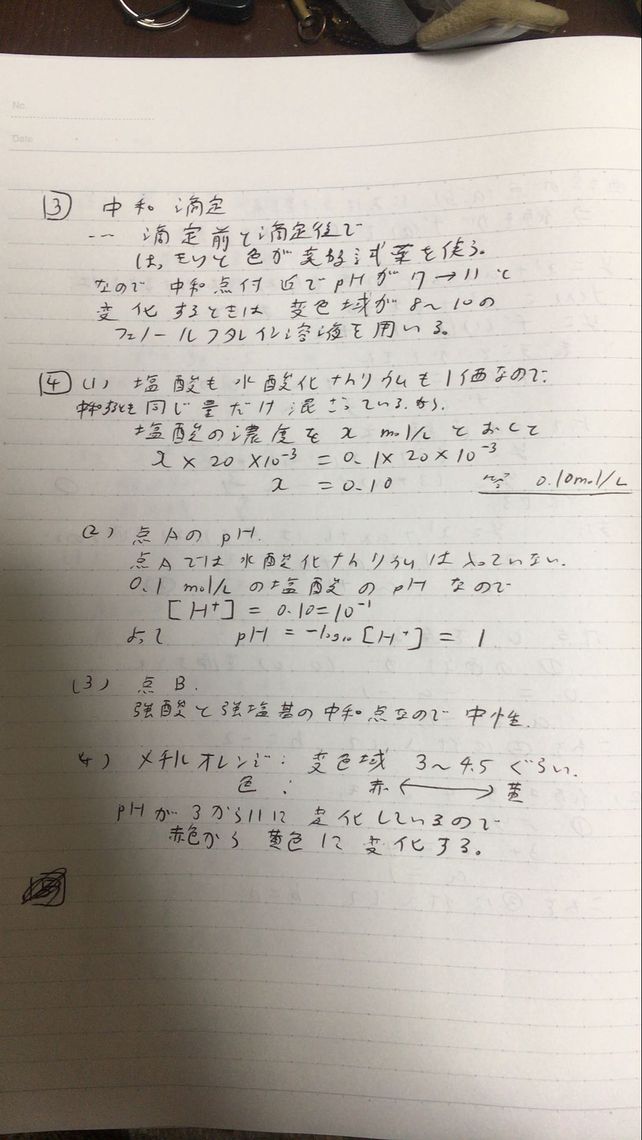 No.
Date
3 中和滴定
… 滴定前と滴定後で
は、きりと色が変わる試薬を使う。
なので 中和点付近でpHが 7→11 と
変化するときは 変色域が 8~10の
フェノールフタレイン溶液を用いる。
4 (1) 塩酸も水酸化ナトリウムも1価なので、
同じ量だけ混ざっているから
塩酸の濃度を x mol/L とおくと
x × 20 ×10⁻³ = 0.1× 20 ×10⁻³
x = 0.10
0.10mol/L
(2) 点AのpH.
点Aでは水酸化ナトリウムは入っていない.
0.1 mol/L の塩酸のpHなので
[H⁺] = 0.10=10⁻¹
よって pH = -log₁₀ [H⁺] = 1
(3) 点B.
強酸と強塩基の中和点なので 中性.
4) メチルオレンジ: 変色域 3~4.5 ぐらい.
色: 赤 ←→ 黄
pHが3から11に変化しているので
赤色から 黄色に 変化する。